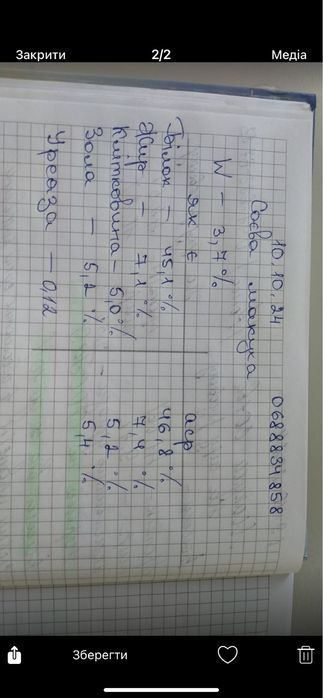 Закрити
2/2
Медіа
10.10.24 0688834858
Соєва макуха
W – 3,7 %
як є аср
Білок – 45,1 % 46,8 %
Жир – 7,1 % 7,4 %
Клітковина – 5,0 % 5,2 %
Зола – 5,2 % 5,4 %
Уреаза – 0,12
Зберегти